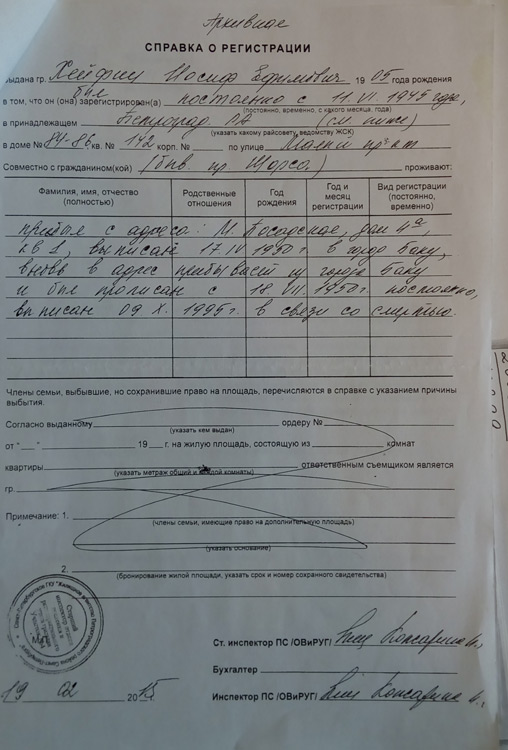 Архивная
СПРАВКА О РЕГИСТРАЦИИ
Выдана гр. Хейфиц Иосиф Ефимович 1905 года рождения
был
в том, что он (она) зарегистрирован(а) постоянно с 11.VI 1945 года,
(постоянно, временно, с какого месяца, года)
в принадлежащем Петроград. РА (см. ниже)
(указать какому райсовету, ведомству, ЖСК)
в доме № 84-86 кв. № 142 корп. № по улице Малый пр-кт
Совместно с гражданином(кой) (быв. пр. Щорса.) проживают:
Фамилия, имя, отчество (полностью)
Родственные отношения
Год рождения
Год и месяц регистрации
Вид регистрации (постоянно, временно)
прибыл с адреса: М. Посадская, дом 4а,
кв 1, выписан 17.IV 1950г. в город Баку,
вновь в адрес прибывает из города Баку
и был прописан с 18.VII.1950г. постоянно,
выписан 09.X.1995г. в связи со смертью.
Члены семьи, выбывшие, но сохранившие право на площадь, перечисляются в справке с указанием причины
выбытия.
Согласно выданному ордеру №
(указать кем выдан)
от "__" 19 г. на жилую площадь, состоящую из комнат
квартиры ответственным съемщиком является
(указать метраж общий и каждой комнаты)
гр.
Примечание: 1.
(члены семьи, имеющие право на дополнительную площадь)
(указать основание)
2.
(бронирование жилой площади, указать срок и номер сохранного свидетельства)
Ст. инспектор ПС /ОВиРУГ/
Бухгалтер
19 02 2015 г. Инспектор ПС /ОВиРУГ/